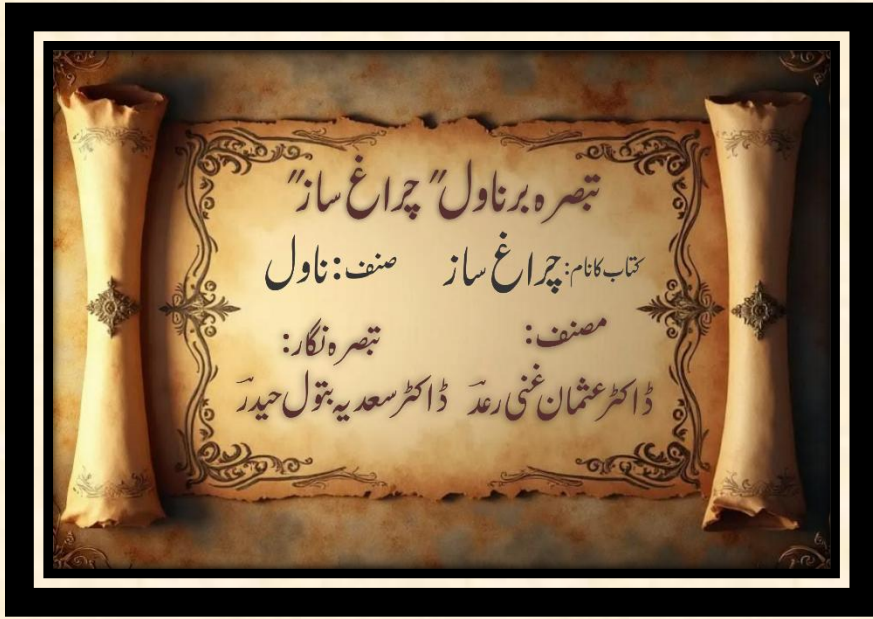 تبصرہ بر ناول "چراغ ساز"
کتاب کا نام: چراغ ساز صنف: ناول
مصنف: تبصرہ نگار:
ڈاکٹر عثمان غنی رعدؔ ڈاکٹر سعدیہ بتول حیدرؔ